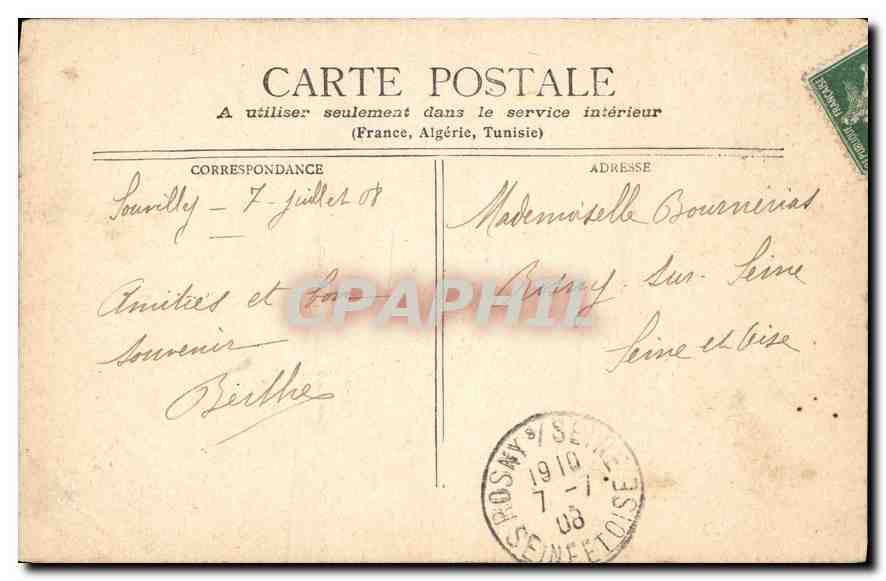 CARTE POSTALE
A utiliser seulement dans le service intérieur
(France, Algérie, Tunisie)
CORRESPONDANCE
7 - juillet 08
Amitiés et bon
souvenir
Berthe
ADRESSE
Mademoiselle Bournérias
Rosny - sur - Seine
Seine et Oise
CPAPHIL
REPUBLIQUE FRANÇAISE
ROSNY S/ SEINE
1910
7 - 7
08
SEINE ET OISE